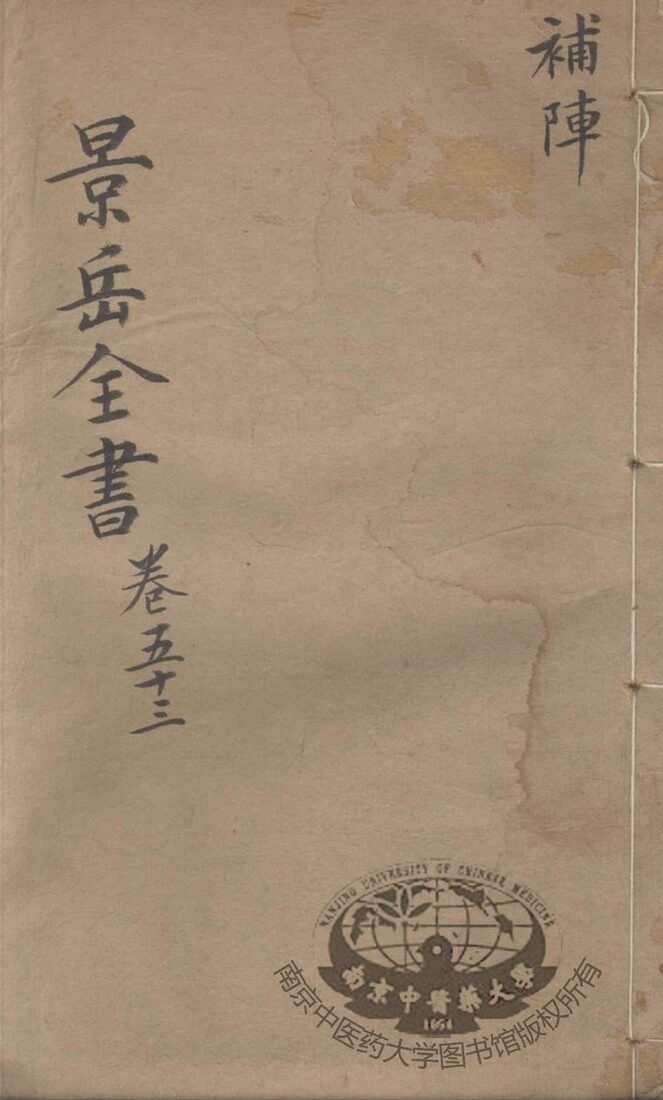 補陣
景岳全書
卷五十三
NANJING UNIVERSITY OF CHINESE MEDICINE
南京中醫藥大學
1954
南京中医药大学图书馆版权所有